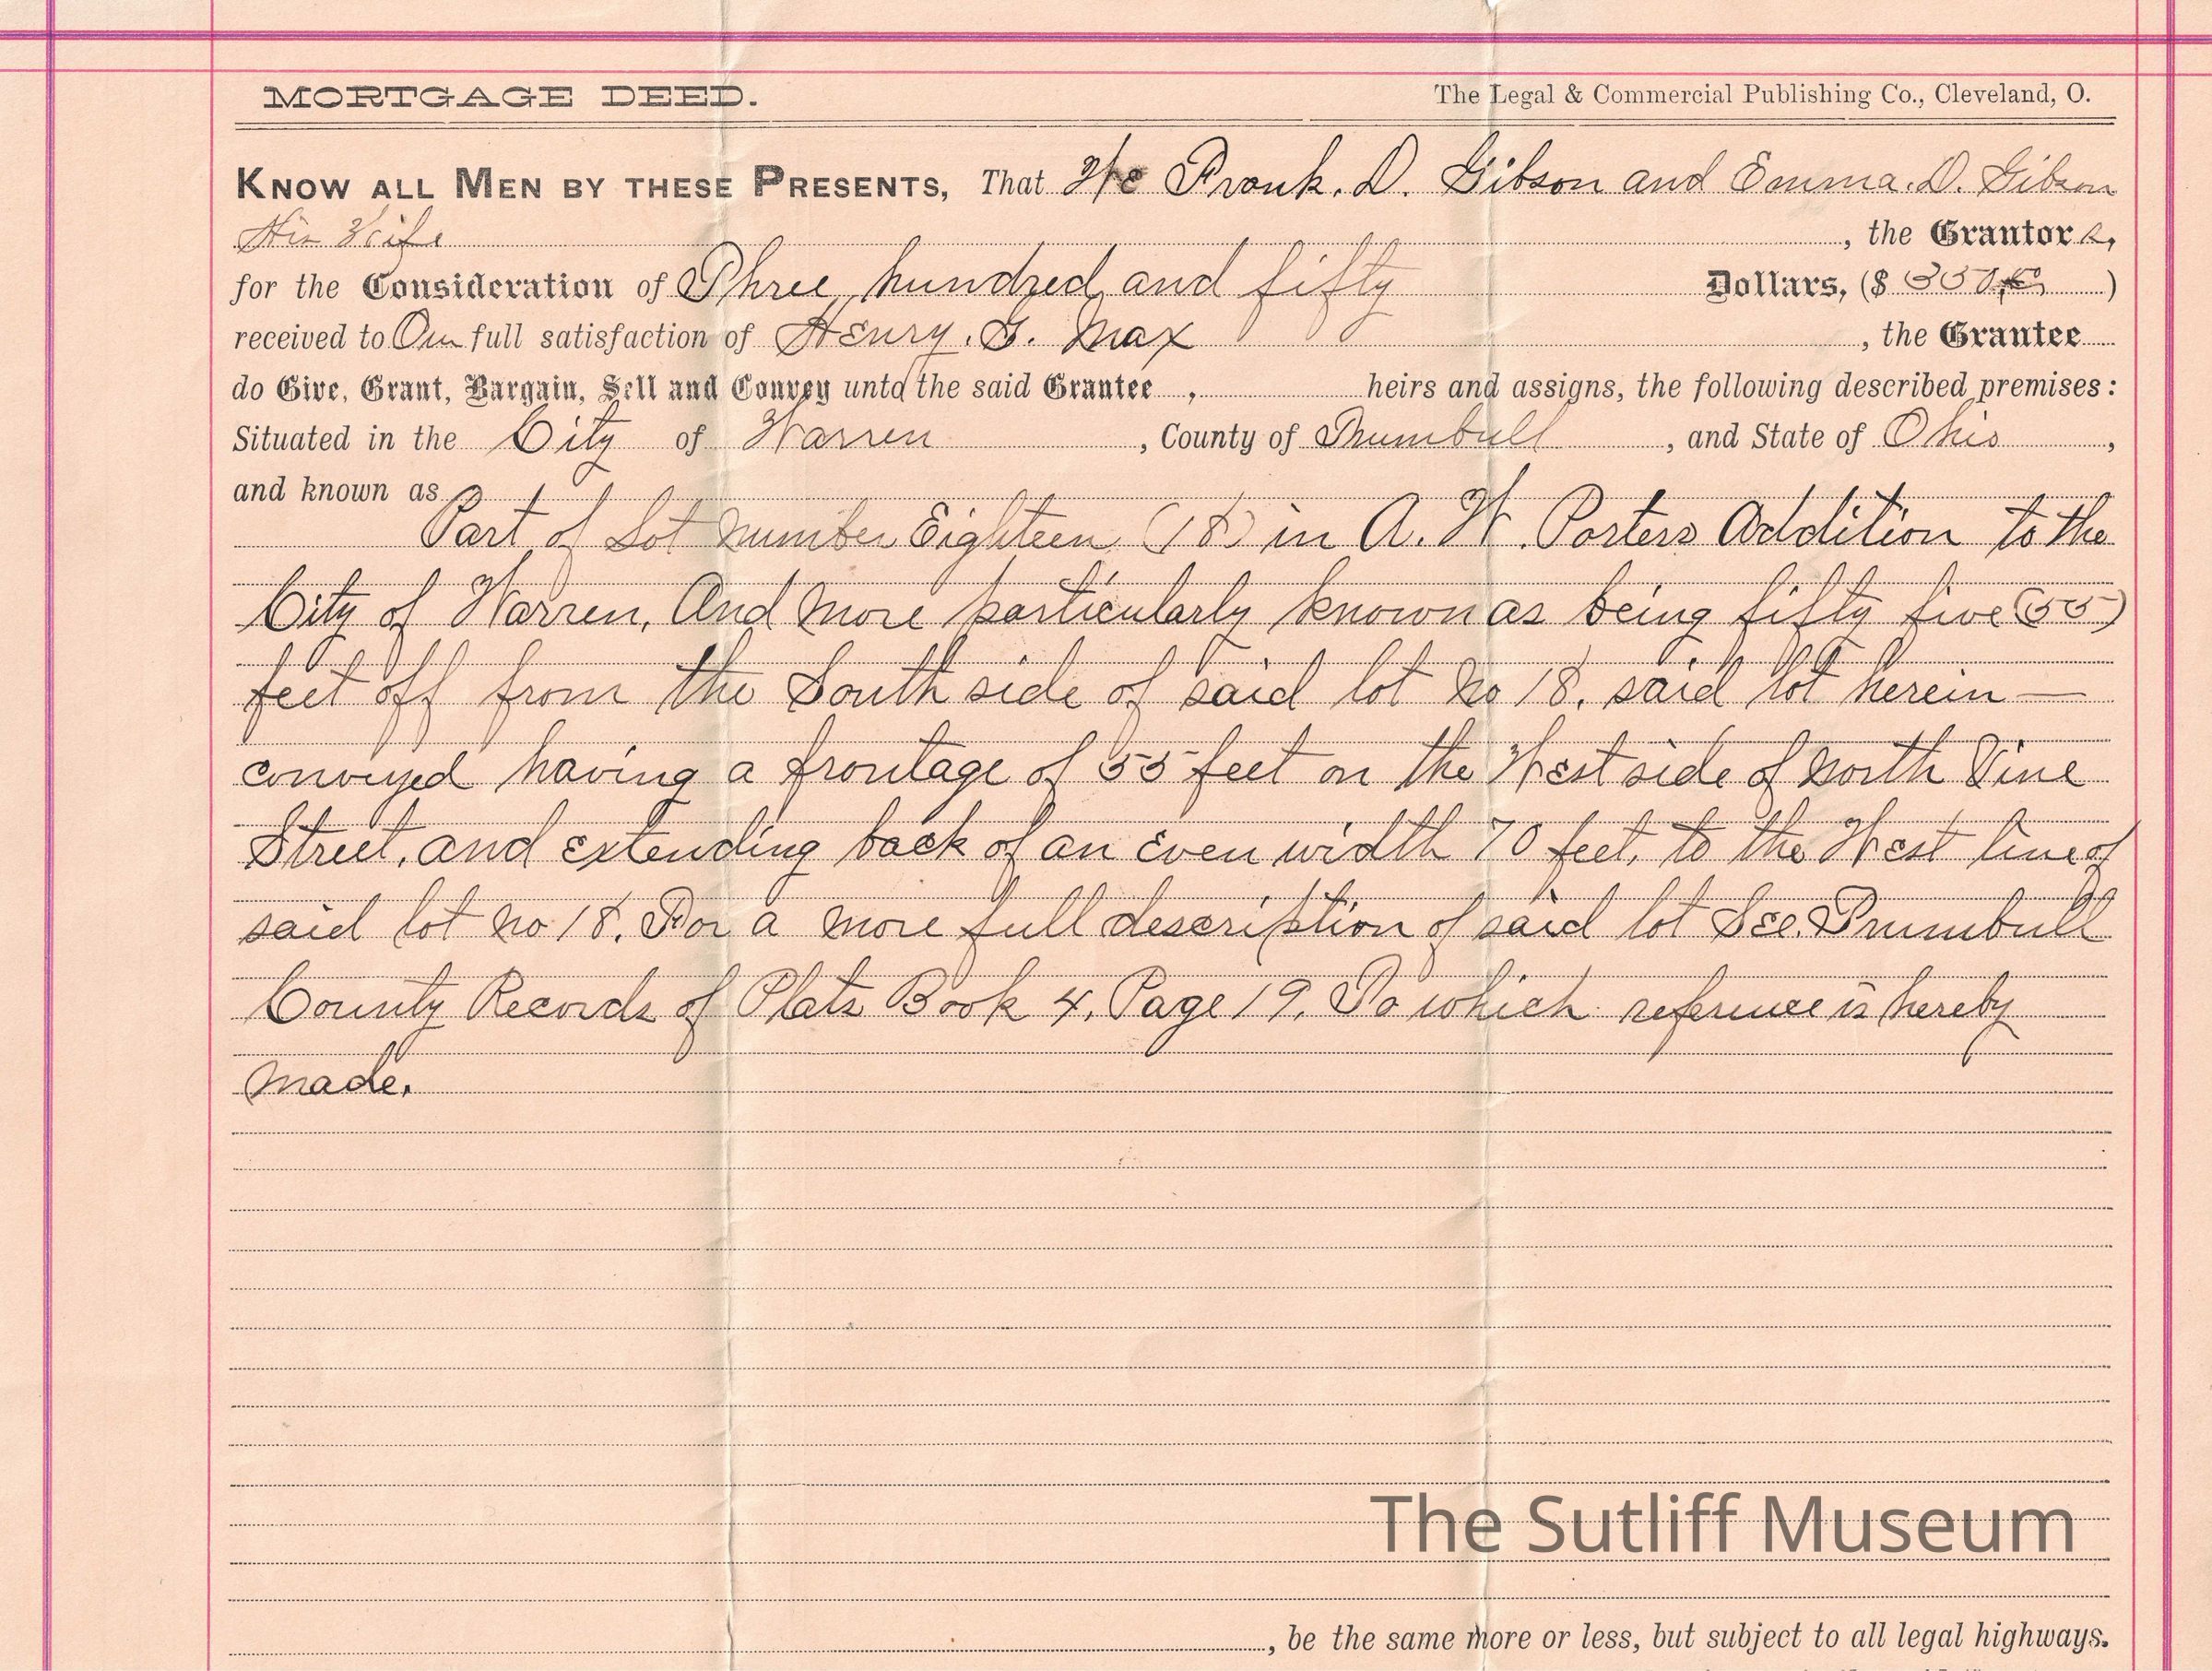 MORTGAGE DEED.
The Legal & Commercial Publishing Co., Cleveland, O.
KNOW ALL MEN BY THESE PRESENTS, That We Frank. D. Gibson and Emma. D. Gibson
His Wife , the Grantor s,
for the Consideration of Three hundred and fifty Dollars, ($ 350 )
received to Our full satisfaction of Henry. G. Max , the Grantee
do Give, Grant, Bargain, Sell and Convey unto the said Grantee , heirs and assigns, the following described premises:
Situated in the City of Warren , County of Trumbull , and State of Ohio ,
and known as
Part of Lot number Eighteen (18) in A. W. Porters Addition to the
City of Warren, And more particularly known as being fifty five (55)
feet off from the South side of said lot No 18. said lot herein —
conveyed having a frontage of 55 feet on the West side of North Vine
Street, and extending back of an even width 70 feet, to the West line of
said lot no 18. For a more full description of said lot See. Trumbull
County Records of Plats Book 4, Page 19. To which reference is hereby
made.
The Sutliff Museum
, be the same more or less, but subject to all legal highways.